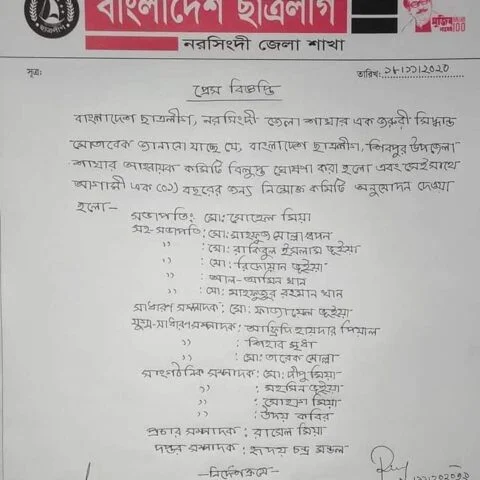 বাংলাদেশ ছাত্রলীগ
নরসিংদী জেলা শাখা
সূত্র:
তারিখ: ২৮/১১/২০২০
প্রেস বিজ্ঞপ্তি
বাংলাদেশ ছাত্রলীগ, নরসিংদী জেলা শাখার এক জরুরী সিদ্ধান্ত
মোতাবেক জানানো যাচ্ছে যে, বাংলাদেশ ছাত্রলীগ, শিবপুর উপজেলা
শাখার আহবায়ক কমিটি বিলুপ্ত ঘোষণা করা হলো এবং সেই সাথে
আগামী এক (০১) বছরের জন্য নিম্নোক্ত কমিটি অনুমোদন দেওয়া
হলো—
সভাপতি: মো: সোহেল মিয়া
সহ-সভাপতি: মো: মাহফুজ মোল্লা স্বপন
" : মো: রাকিবুল ইসলাম ভূইয়া
" : মো: রিদোয়ান ভূইয়া
" : আল-আমিন খান
" : মো: মাহফুজুর রহমান খান
সাধারণ সম্পাদক: মো: ফাজায়েল ভূইয়া
যুগ্ম-সাধারণ সম্পাদক: আফ্রিদি হায়দার পিয়াল
" : শিহাব মৃধা
" : মো: তারেক মোল্লা
সাংগঠনিক সম্পাদক: মো: দীপু মিয়া
" : মহসিন ভূইয়া
" : সোহাগ মিয়া
" : উদয় কবির
প্রচার সম্পাদক: রাসেল মিয়া
দপ্তর সম্পাদক: হৃদয় চন্দ্র মন্ডল
—নির্দেশক্রমে—